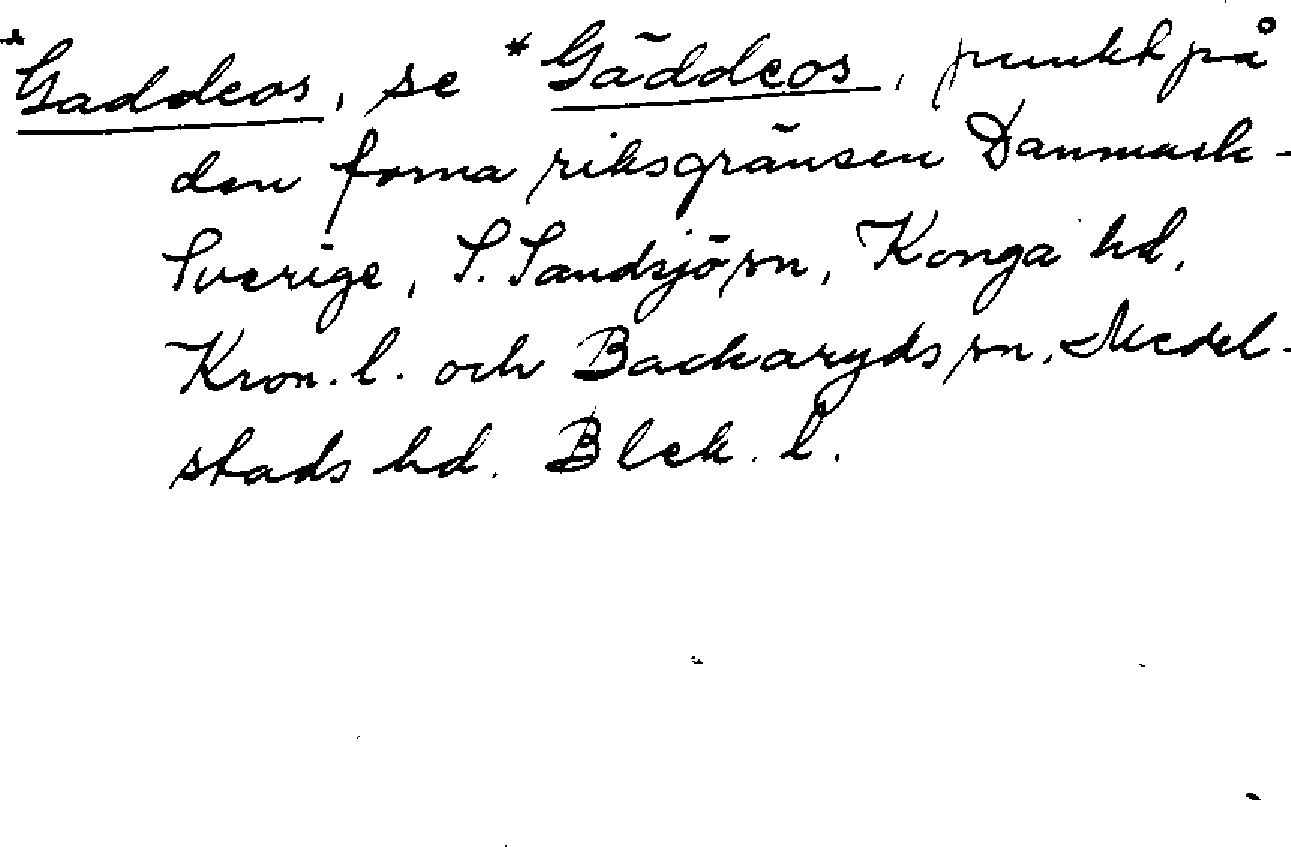 *Gaddeos, se *Gäddeos, punkt på
den forna riksgränsen Danmark-
Sverige, S. Sandsjö sn, Konga hd,
Kron. l. och Backaryds sn, Medel-
stads hd. Blek. l.